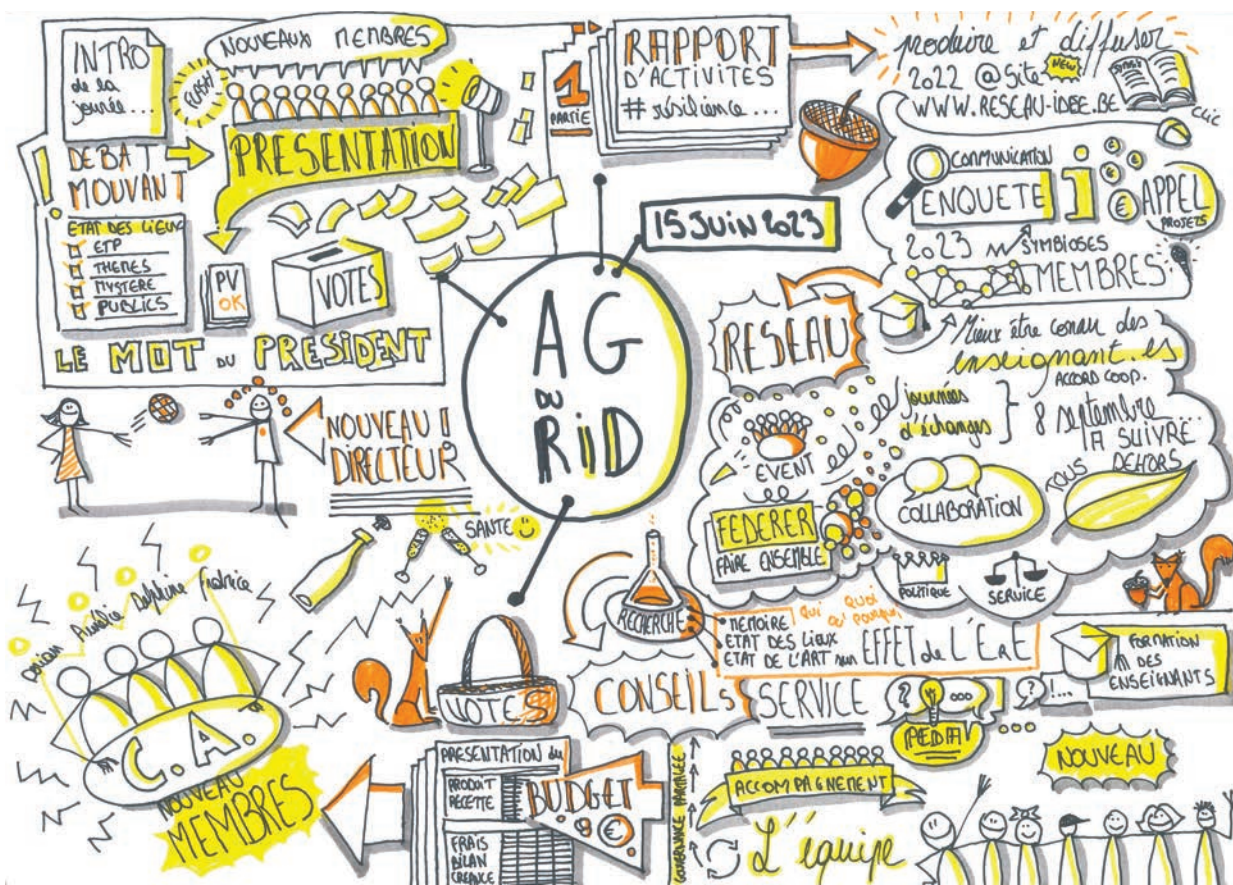 INTRO
de la
journée...
FLASH
NOUVEAUX MEMBRES
PRESENTATION
DEBAT
MOUVANT
ETAT DES LIEUX
ETP
THEMES
MYSTERE
PUBLICS
PV
OK
VOTES
LE MOT DU PRESIDENT
1
PARTIE
RAPPORT
D'ACTIVITES
# résilience...
produire et diffuser
2022 @ Site NEW
WWW.RESEAU-IDEE.BE
CLIC
COMMUNICATION
ENQUETE
i
€
APPEL
PROJETS
2023
SYMBIOSES
MEMBRES
15 JUIN 2023
AG
DU
RiD
RESEAU
Mieux être connu des
enseignant.es
ACCORD COOP.
journées
d'échanges
8 septembre...
A SUIVRE
EVENT
FEDERER
FAIRE ENSEMBLE
COLLABORATION
TOUS
DEHORS
POLITIQUE
SERVICE
NOUVEAU !!
DIRECTEUR
SANTE
Dorian Aurélie Delphine
C.A.
NOUVEAU
MEMBRES
VOTES
RECHERCHE
MEMOIRE
ETAT DES LIEUX
ETAT DE L'ART sur EFFET de L'ErE
QUI QUOI
OÙ POURQUOI
CONSEILS
SERVICE
? ...
PEDA
? !...
FORMATION
DES
ENSEIGNANTS
PRESENTATION du
BUDGET
€
PRODUIT
RECETTE
FRAIS
BILAN
CREANCE
GOUVERNANCE PARTAGEE
ACCOMPAGNEMENT
L'équipe
NOUVEAU